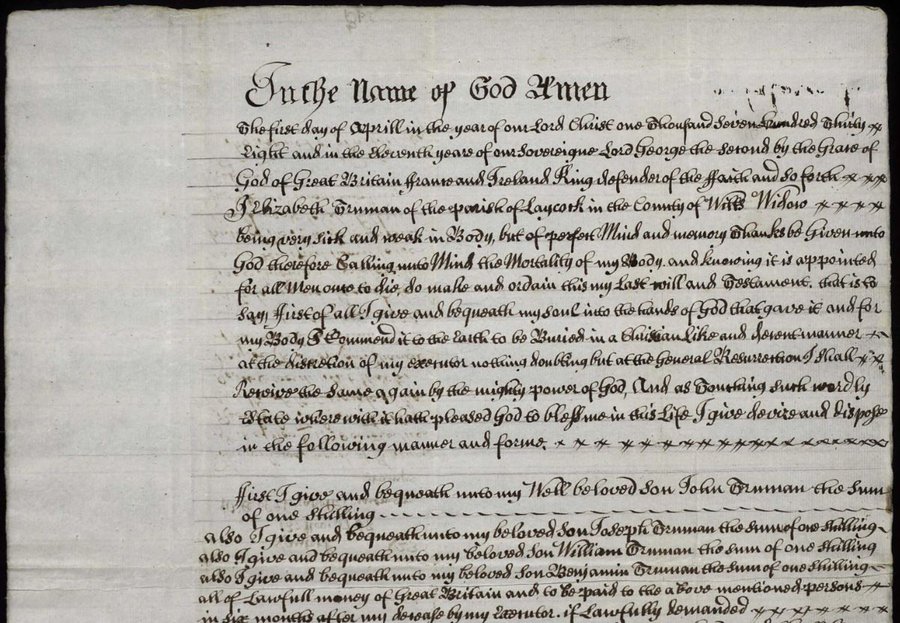 In the Name of God Amen
The first day of Aprill in the year of our Lord Christ one Thousand Seven hundred Thirty
Eight and in the Eleventh yeare of our Sovereigne Lord George the Second by the Grace of
God of Great Britain ffrance and Ireland King defender of the ffaith and so forth
I Elizabeth Truman of the parish of Laycock in the County of Wilts Widow
being very sick and weak in Body, but of perfect Mind and memory Thanks be Given unto
God therefore Calling unto Mind the Mortality of my Body and knowing it is appointed
for all Men once to die, do make and ordain this my Last will and Testament. that is to
say, ffirst of all I give and bequeath my soul into the hands of God that gave it and for
my Body I Commend it to the Earth to be Buried in a Christian Like and decent manner
at the discretion of my executor nothing doubting but at the General Resurrection I shall
Receive the same again by the mighty power of God, And as Touching such wordly
Estate where with it hath pleased God to bless me in this Life I give devize and dispose
in the following manner and forme
ffirst I give and bequeath unto my Well beloved son John Truman the sum
of one shilling
also I give and bequeath unto my beloved son Joseph Truman the sum of one shilling
also I give and bequeath unto my beloved son William Truman the sum of one shilling
also I give and bequeath unto my beloved son Benjamin Truman the sum of one shilling
all of Lawfull money of Great Britain and to be paid to the above mentioned persons
in six months after my decease by my Executor. if Lawfully demanded